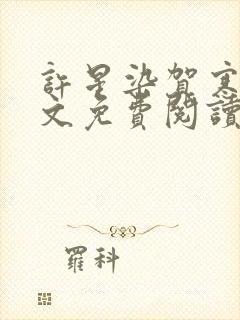 許星染賀寒
文免費閱讀
羅科